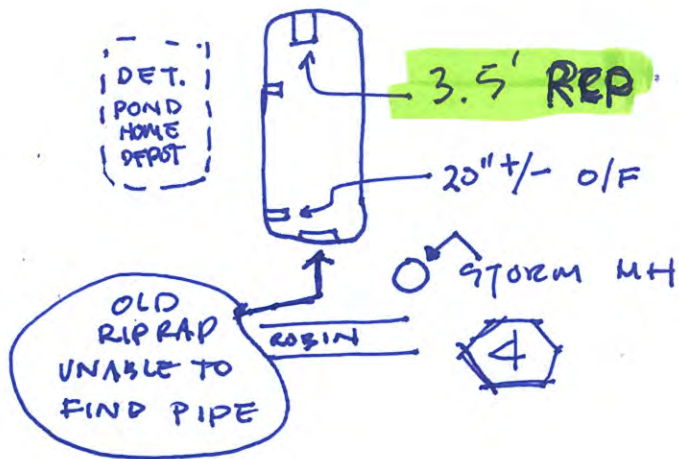 DET.
POND
HOME
DEPOT
3.5' RCP
20" +/- O/F
STORM MH
OLD
RIPRAP
UNABLE TO
FIND PIPE
ROBIN
4